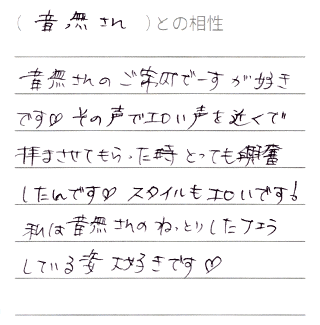 ( 音無され )との相性
音無されのご奉仕でーすが好き
です♡ その声でエロい声を近くで
拝ませてもらった時とっても興奮
したんです♡ スタイルもエロいです!
私は音無されのねっとりしたフェラ
している姿 大好きです♡